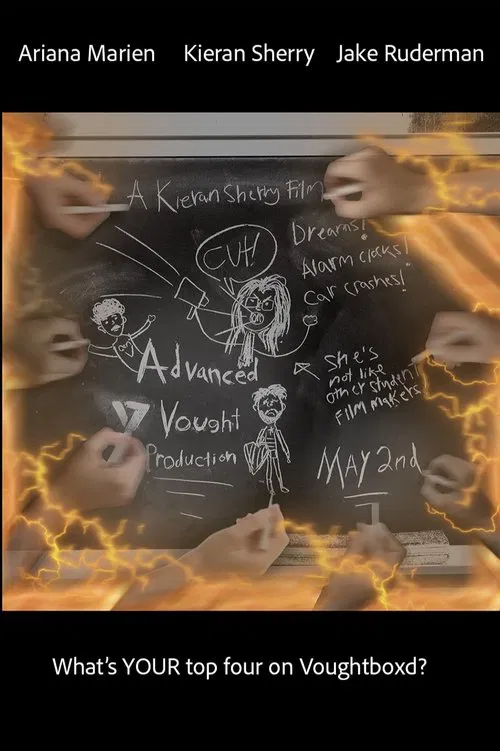 Ariana Marien Kieran Sherry Jake Ruderman
A Kieran Sherry Film
CUT!
Dreams!
Alarm clocks!
Car crashes!
She's
not like
other student
film makers
Advanced
Vought
Production
MAY 2nd
What's YOUR top four on Voughtboxd?